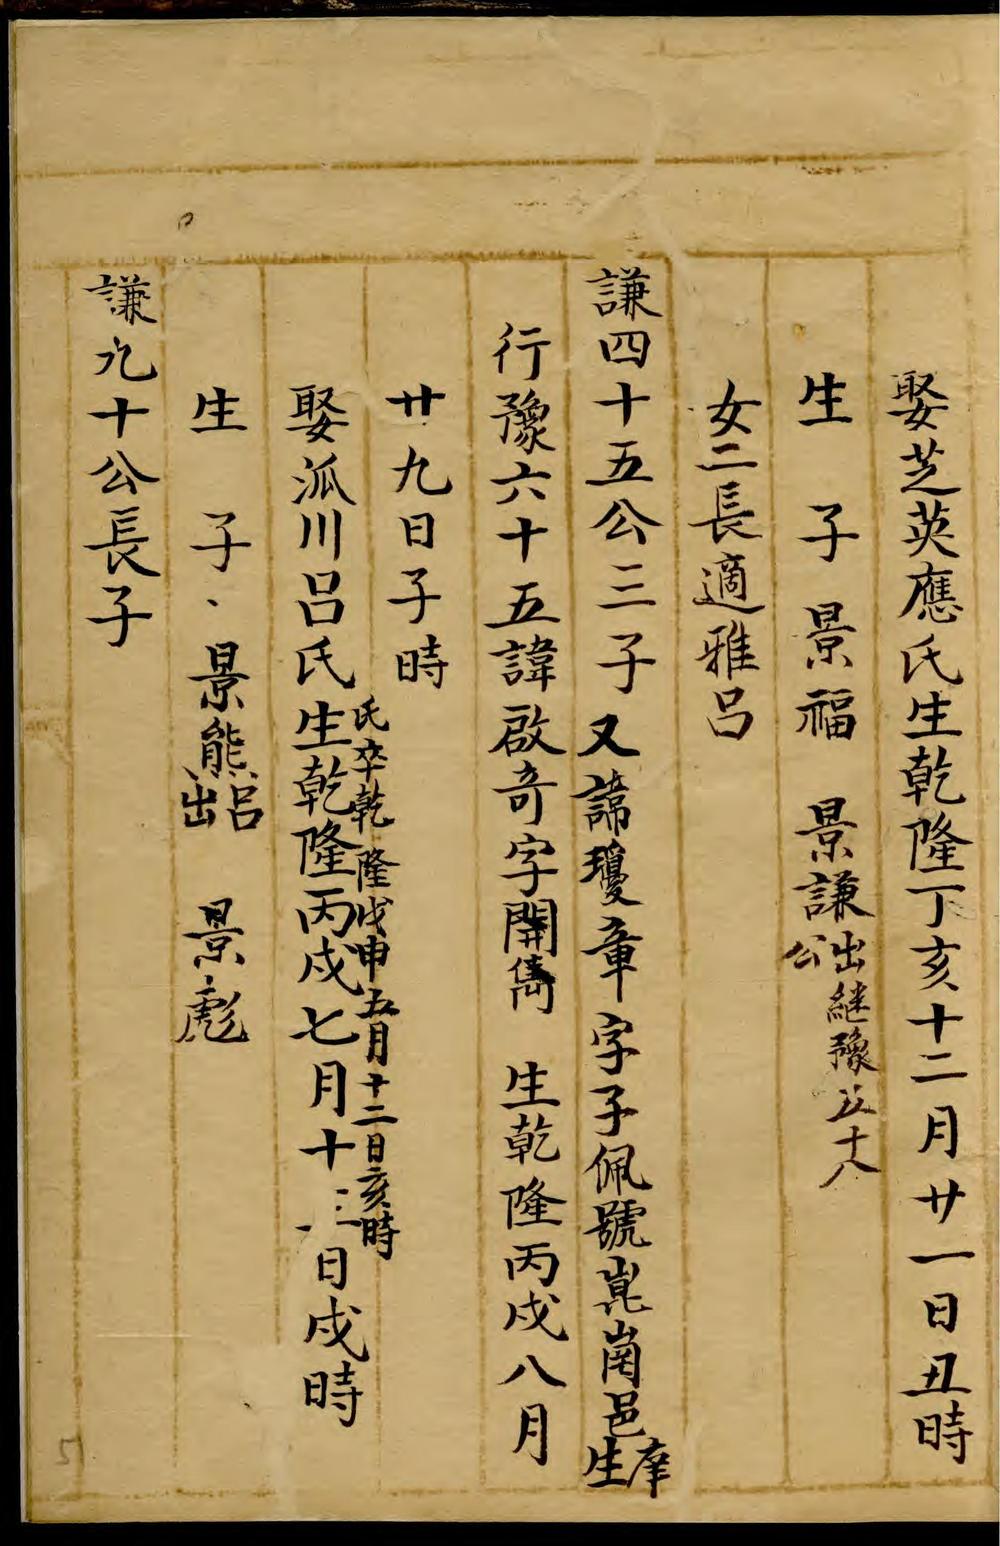 娶芝英應氏生乾隆丁亥十二月廿一日丑時
生子景福 景謙出繼豫五十八公
女二長適雅呂
謙四十五公三子又諱瓊章字子佩號崑崗邑庠生
行豫六十五諱啟奇字開雋 生乾隆丙戌八月
廿九日子時
氏卒乾隆戊申五月十二日亥時
娶派川呂氏生乾隆丙戌七月十三日戌時
生子、景熊呂出 景彪
謙九十公長子